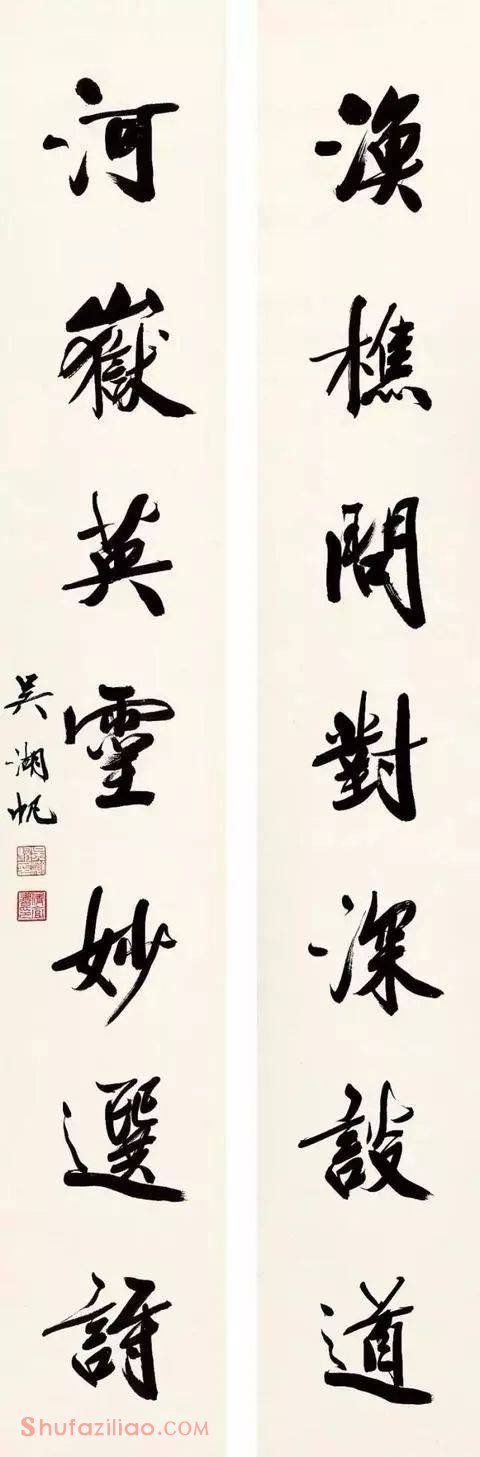 漁樵問對深談道
河嶽英靈妙選詩
吳湖帆
Shufaziliao.COM